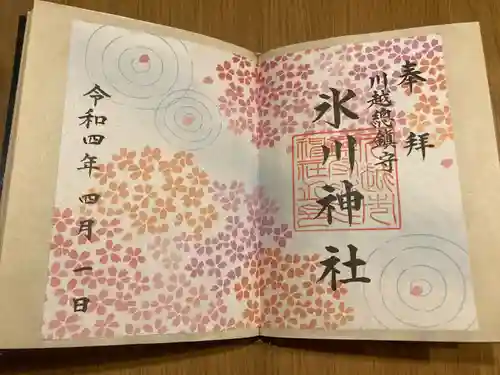 奉拝
川越總鎮守
氷川神社
令和四年四月一日